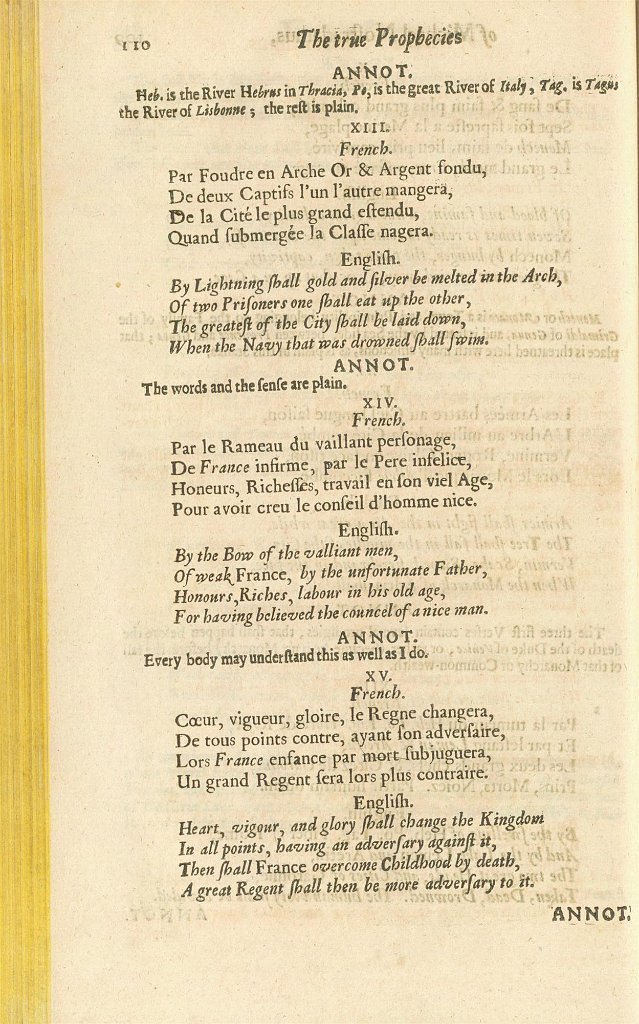 110 The true Prophecies
ANNOT.
Heb. is the River Hebrus in Thracia, Po, is the great River of Italy, Tag. is Tagus
the River of Lisbonne; the reſt is plain.
XIII.
French.
Par Foudre en Arche Or & Argent fondu,
De deux Captifs l'un l'autre mangera,
De la Cité le plus grand eſtendu,
Quand ſubmergée la Claſſe nagera.
Engliſh.
By Lightning ſhall gold and ſilver be melted in the Arch,
Of two Priſoners one ſhall eat up the other,
The greateſt of the City ſhall be laid down,
When the Navy that was drowned ſhall ſwim.
ANNOT.
The words and the ſenſe are plain.
XIV.
French.
Par le Rameau du vaillant perſonage,
De France infirme, par le Pere infelice,
Honeurs, Richeſſes, travail en ſon viel Age,
Pour avoir creu le conſeil d'homme nice.
Engliſh.
By the Bow of the valliant men,
Of weak France, by the unfortunate Father,
Honours, Riches, labour in his old age,
For having believed the councel of a nice man.
ANNOT.
Every body may underſtand this as well as I do.
XV.
French.
Cœur, vigueur, gloire, le Regne changera,
De tous points contre, ayant ſon adverſaire,
Lors France enfance par mort ſubjuguera,
Un grand Regent ſera lors plus contraire.
Engliſh.
Heart, vigour, and glory ſhall change the Kingdom
In all points, having an adverſary againſt it,
Then ſhall France overcome Childhood by death,
A great Regent ſhall then be more adverſary to it.
ANNOT.